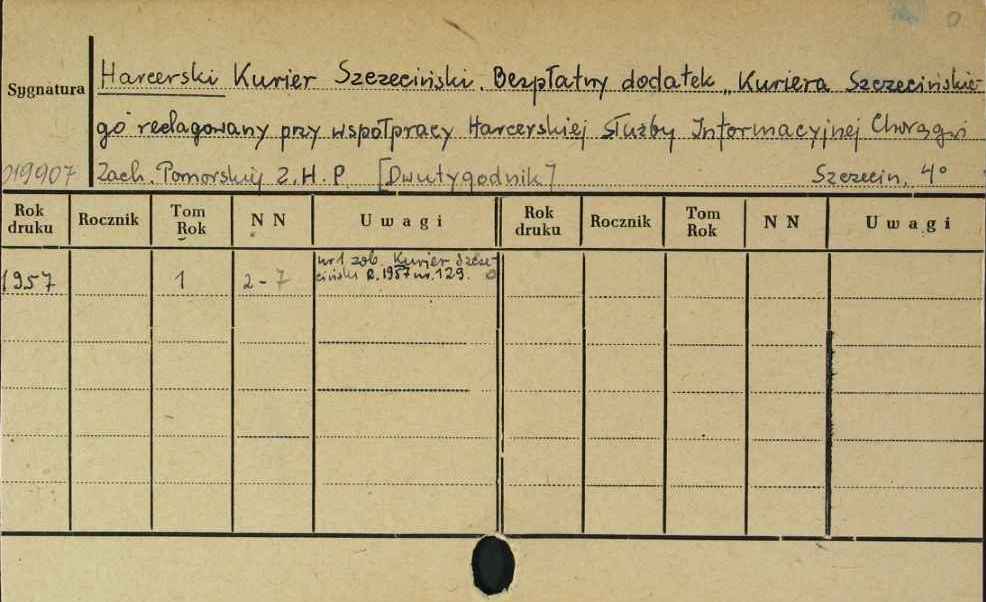 0
Harcerski Kurier Szczeciński. Bezpłatny dodatek „Kuriera Szczecińskie-
Sygnatura
go" redagowany przy współpracy Harcerskiej Służby Informacyjnej Chorągwi
019907 Zach. Pomorskiej Z.H.P [Dwutygodnik] Szczecin, 4°
Rok druku Rocznik Tom Rok N N Uwagi Rok druku Rocznik Tom Rok N N Uwagi
1957 1 2-7 nr 1 zob. Kurier Szcze-
ciński R. 1957 nr. 129.